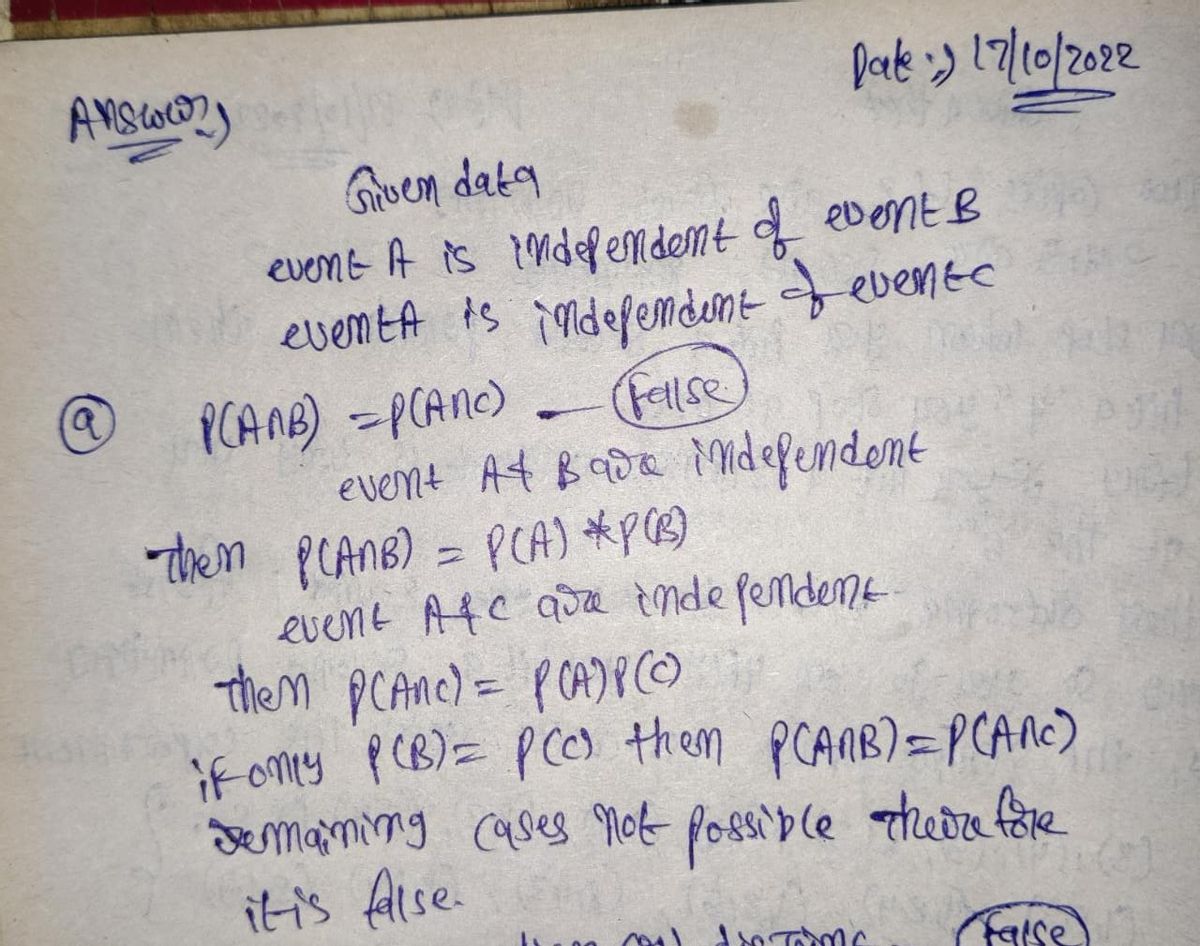 Date :) 17/10/2022
Answer:)
Given data
event A is independent of event B
event A is independent of event C
(a) P(A∩B) = P(A∩C) — False
event A & B are independent
Then P(A∩B) = P(A) * P(B)
event A & C are independent
Then P(A∩C) = P(A) P(C)
if only P(B) = P(C) then P(A∩B) = P(A∩C)
remaining cases not possible therefore
it is false.
False